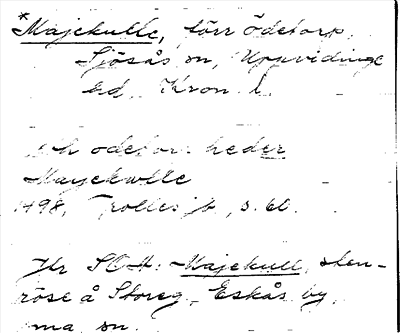 *Majekulle, förr Ödetorp,
Sjösås sn, Uppvidinge
hd, Kron. l.
ödetorp heder
Mayekwlle
1498, Trolles jb, s. 60.
Jfr SOA: Majekull, sten-
röse å Storeg. Eskås by,
sn.